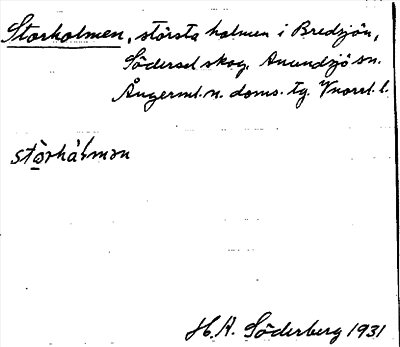 Storholmen, största holmen i Bredsjön,
Södersel skog. Anundsjö sn.
Ångerml. n. doms. tg. Vnorrl. l.
stòrhálmən
H. A. Söderberg 1931